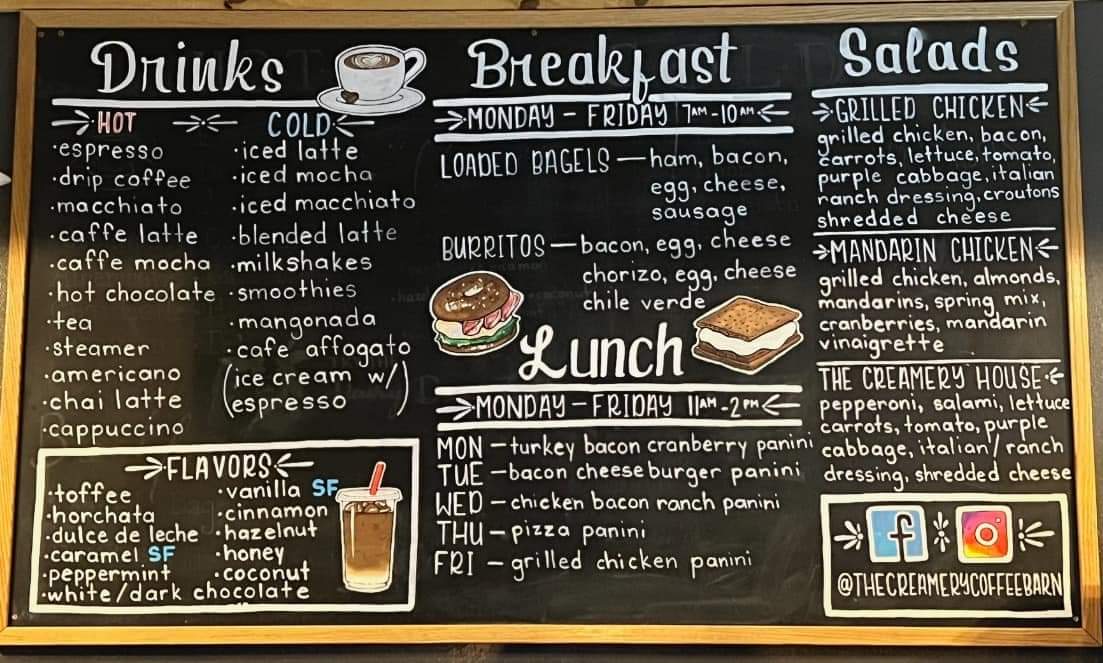 Drinks
HOT
·espresso
·drip coffee
·macchiato
·caffe latte
·caffe mocha
·hot chocolate
·tea
·steamer
·americano
·chai latte
·cappuccino
COLD
·iced latte
·iced mocha
·iced macchiato
·blended latte
·milkshakes
·smoothies
·mangonada
·cafe affogato
(ice cream w/
espresso)
FLAVORS
·toffee
·horchata
·dulce de leche
·caramel SF
·peppermint
·white/dark chocolate
·vanilla SF
·cinnamon
·hazelnut
·honey
·coconut
Breakfast
MONDAY - FRIDAY 7AM-10AM
LOADED BAGELS — ham, bacon,
egg, cheese,
sausage
BURRITOS — bacon, egg, cheese
chorizo, egg, cheese
chile verde
Lunch
MONDAY - FRIDAY 11AM-2PM
MON - turkey bacon cranberry panini
TUE - bacon cheeseburger panini
WED - chicken bacon ranch panini
THU - pizza panini
FRI - grilled chicken panini
Salads
GRILLED CHICKEN
grilled chicken, bacon,
carrots, lettuce, tomato,
purple cabbage, italian
ranch dressing, croutons
shredded cheese
MANDARIN CHICKEN
grilled chicken, almonds,
mandarins, spring mix,
cranberries, mandarin
vinaigrette
THE CREAMERY HOUSE
pepperoni, salami, lettuce
carrots, tomato, purple
cabbage, italian/ranch
dressing, shredded cheese
f
@THECREAMERYCOFFEEBARN